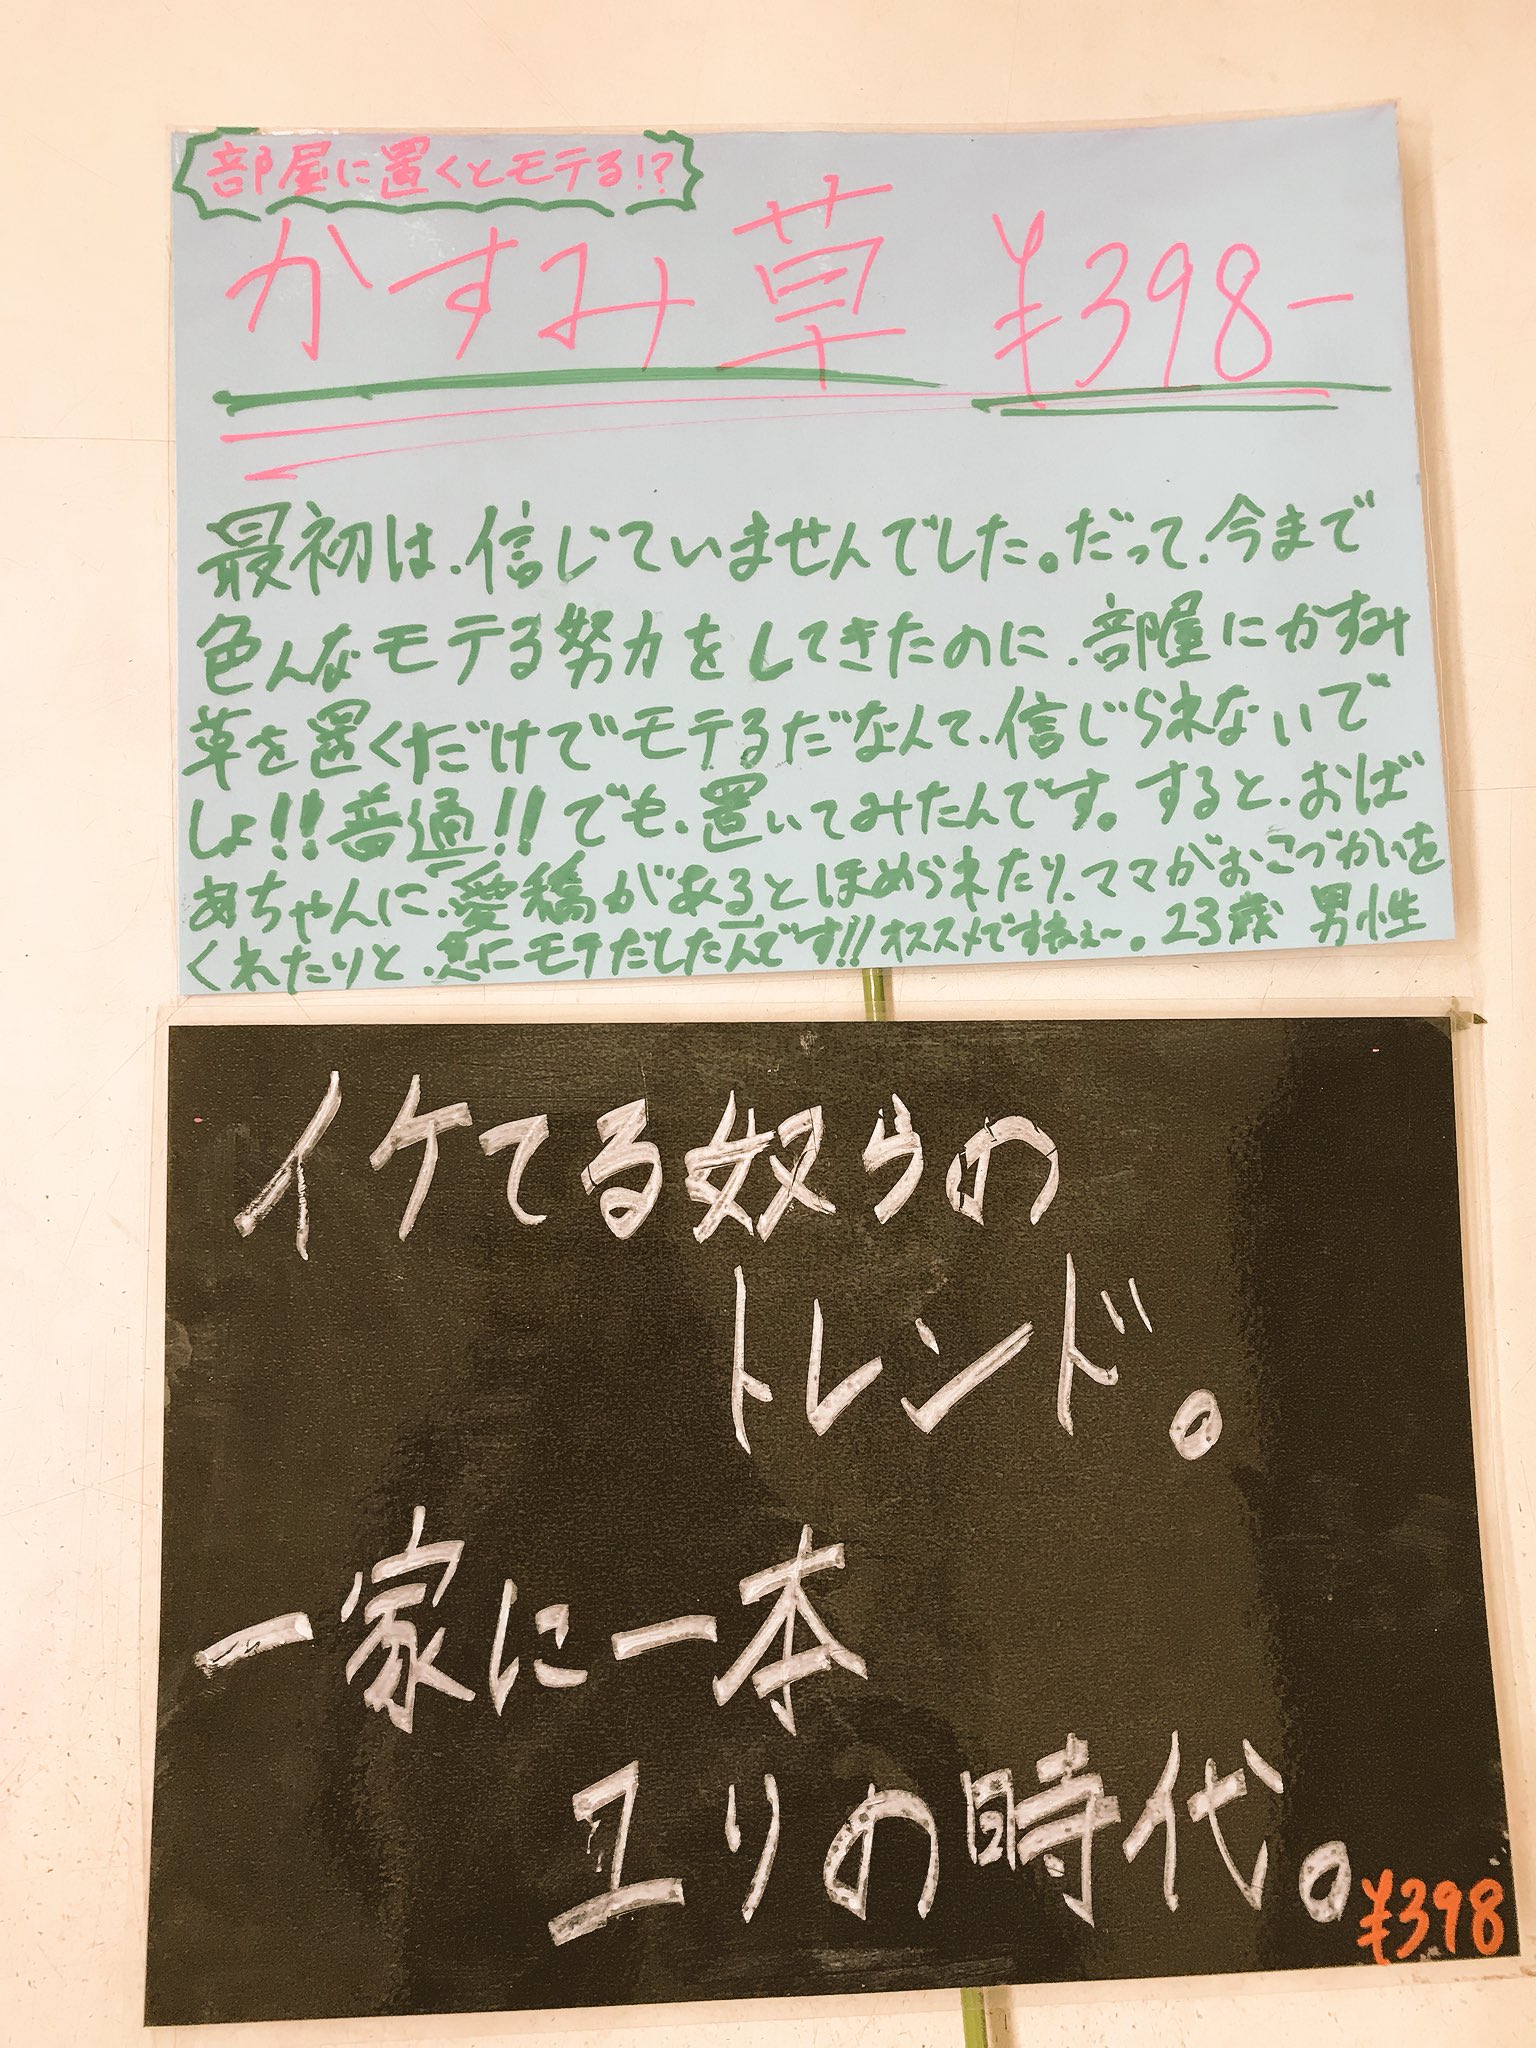 部屋に置くとモテる!?
かすみ草 ¥398-
最初は、信じていませんでした。だって、今まで
色んなモテる努力をしてきたのに、部屋にかすみ
草を置くだけでモテるだなんて、信じられないで
しょ!!普通!!でも、置いてみたんです。すると、おば
あちゃんに、愛稿があるとほめられたり、ママがおこづかいを
くれたりと、急にモテだしたんです!!オススメですねぇ〜。23歳 男性
イケてる奴らの
トレンド。
一家に一本
ユリの時代。
¥398